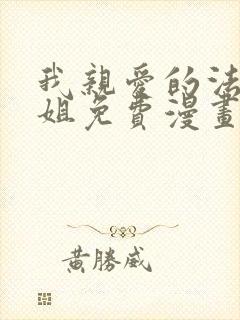 我親愛的法
姐免費漫畫
黃勝威